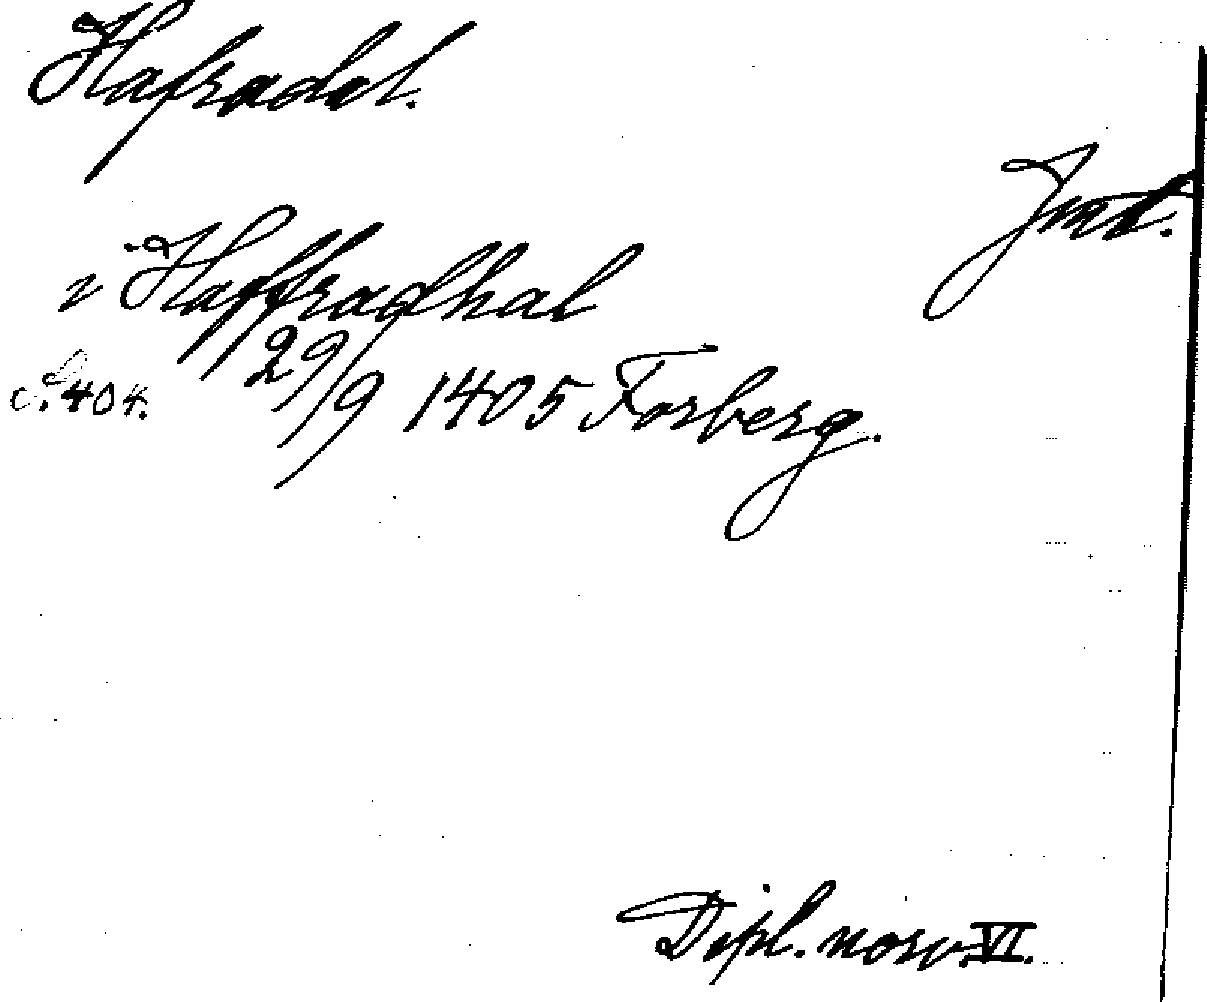 Hafradal.
Jmt.
i Haffradhal
s. 404. 29/9 1405 Forberg.
Dipl. norv. VI.